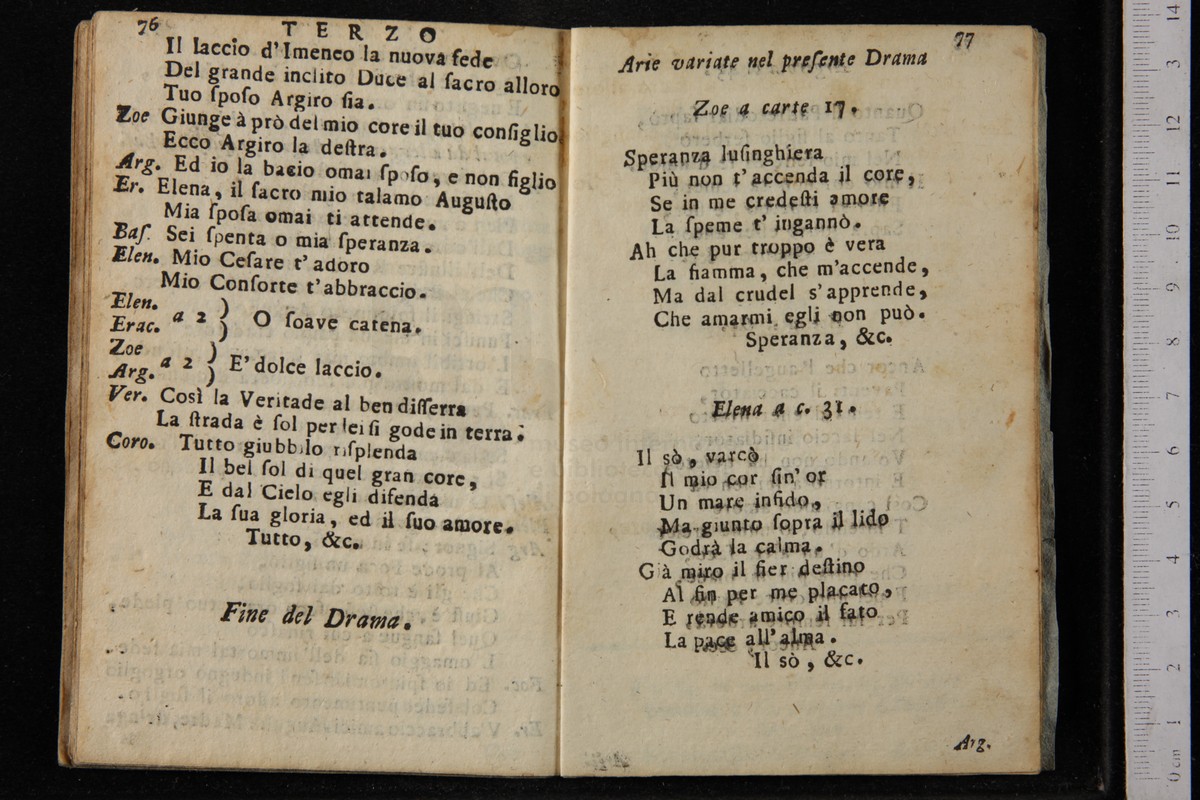 76
TERZO
Il laccio d'Imeneo la nuova fede
Del grande inclito Duce al ſacro alloro
Tuo ſpoſo Argiro ſia.
Zoe Giunge à prò del mio core il tuo conſiglio
Ecco Argiro la deſtra.
Arg. Ed io la bacio omai ſpoſo, e non figlio
Er. Elena, il ſacro mio talamo Auguſto
Mia ſpoſa omai ti attende.
Baſ. Sei ſpenta o mia ſperanza.
Elen. Mio Ceſare t'adoro
Mio Conſorte t'abbraccio.
Elen.
Erac. a 2 ) O ſoave catena.
Zoe
Arg. a 2 ) E' dolce laccio.
Ver. Così la Veritade al ben diſſerra
La ſtrada è ſol per lei ſi gode in terra.
Coro. Tutto giubbilo riſplenda
Il bel ſol di quel gran core,
E dal Cielo egli difenda
La ſua gloria, ed il ſuo amore.
Tutto, &c.
Fine del Drama.
77
Arie variate nel preſente Drama
Zoe a carte 17.
Speranza luſinghiera
Più non t'accenda il core,
Se in me credeſti amore
La ſpeme t'ingannò.
Ah che pur troppo è vera
La fiamma, che m'accende,
Ma dal crudel s'apprende,
Che amarmi egli non può.
Speranza, &c.
Elena a c. 31.
Il sò, varcò
Il mio cor ſin'or
Un mare infido,
Ma giunto ſopra il lido
Godrà la calma.
Già miro il fier deſtino
Al fin per me placato,
E rende amico il fato
La pace all'alma.
Il sò, &c.
Arg.
14
13
12
11
10
9
8
7
6
5
4
3
2
1
0 cm